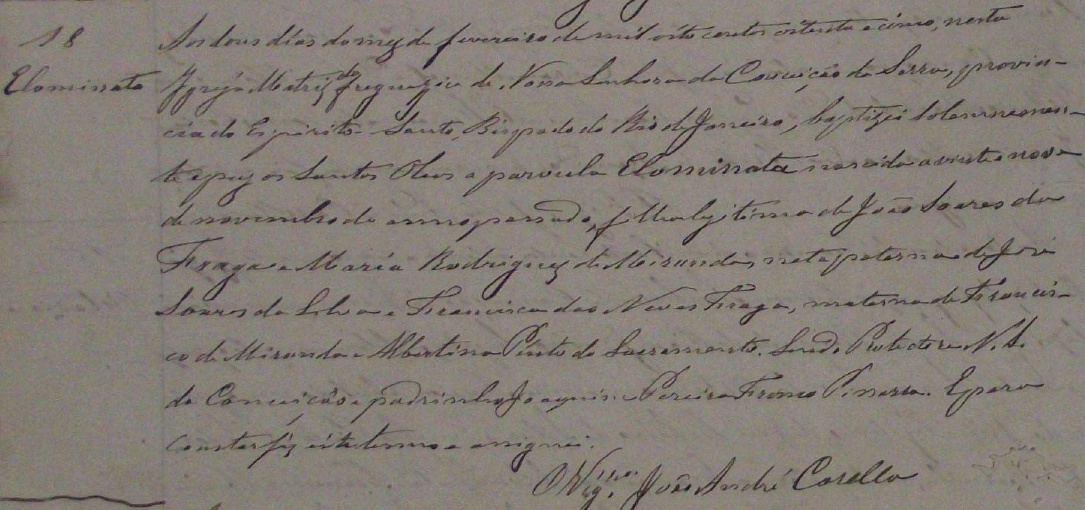 18
Elominata
Aos dous dias do mez de fevereiro de mil oito centos oitenta e cinco, nesta
Igreja Matriz da freguezia de Nossa Senhora da Conceição da Serra, provin-
cia do Espirito-Santo, Bispado do Rio de Janeiro, baptizei solemnemen-
te e puz os Santos Oleos a parvula Elominata nascida a vinte e nove
de novembro do anno passado, filha legitima de João Soares da
Fraga e Maria Rodrigues de Miranda, neta paterna de José
Soares da Silva e Francisca das Neves Fraga, materna de Francis-
co de Miranda e Albertina Pinto do Sacramento. Sendo Protectora N. S.
da Conceição e padrinho Joaquim Pereira Franco Pissarra. E para
constar fiz este termo e assignei.
O Vig.º João André Casella